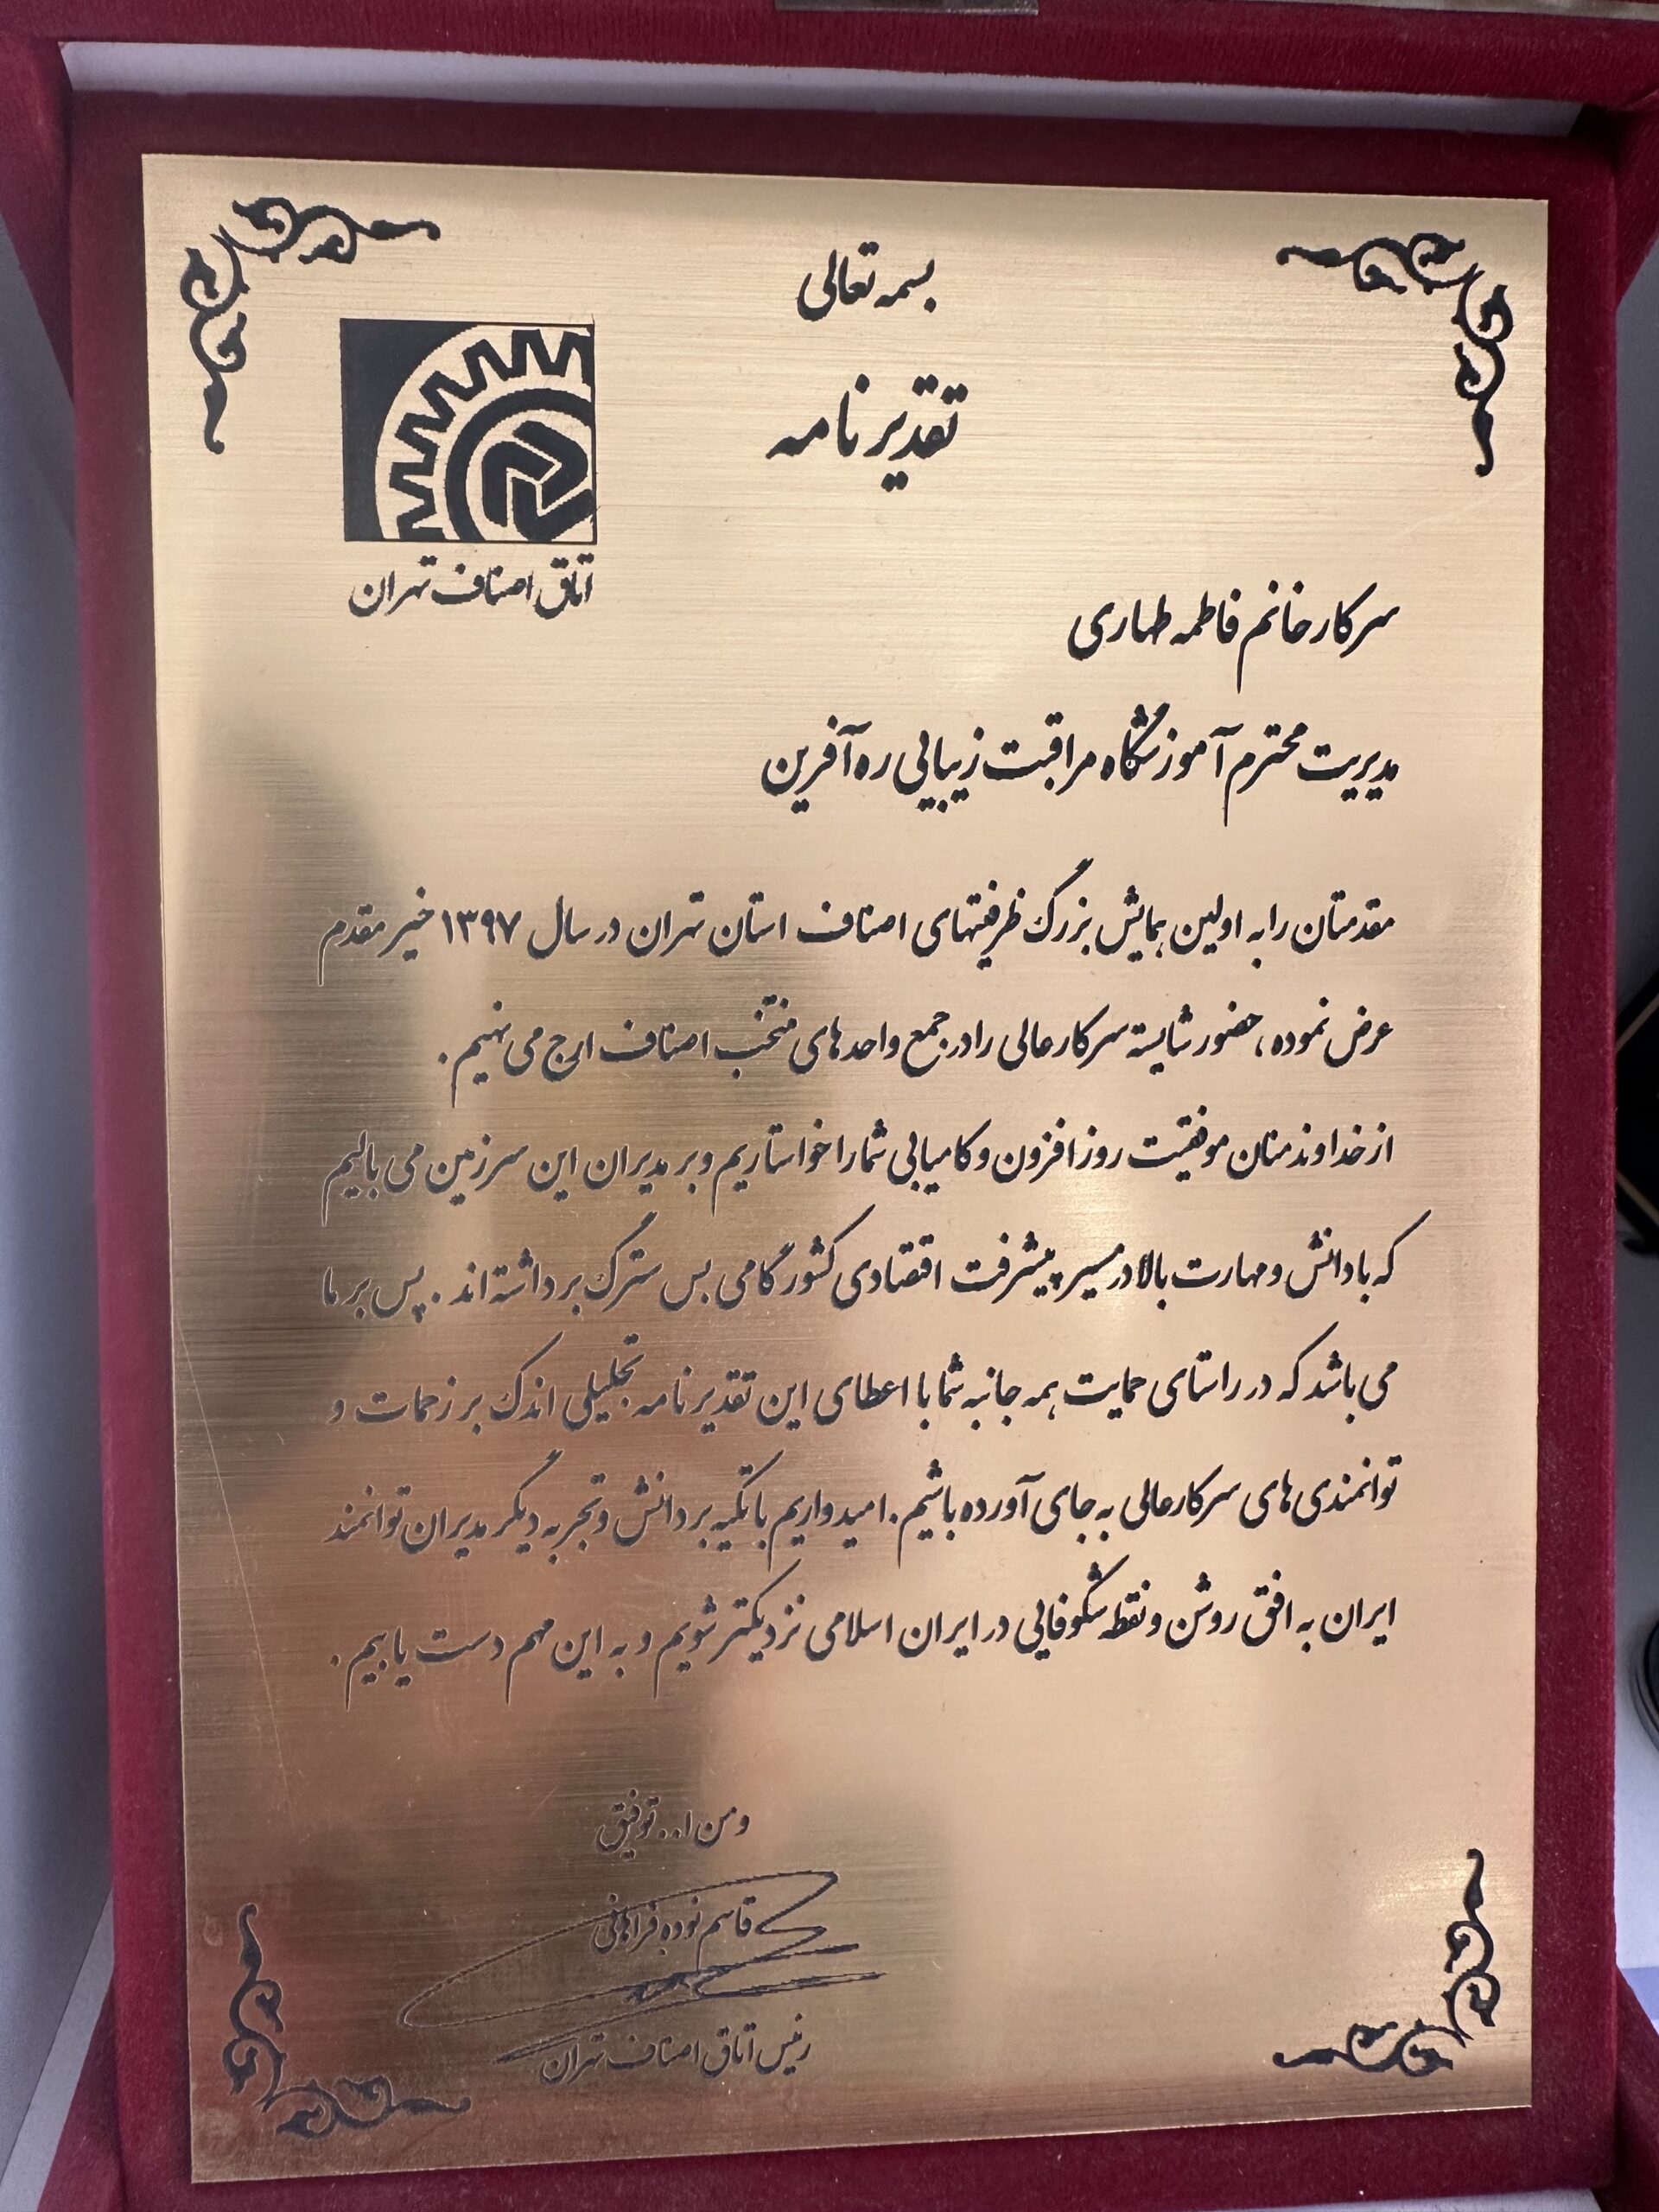 بسمه تعالی
تقدیرنامه
اتاق اصناف تهران
سرکار خانم فاطمه طهاری
مدیریت محترم آموزشگاه مراقبت زیبایی ره آفرین
مقدمتان را به اولین همایش بزرگ ظرفیتهای اصناف استان تهران در سال ۱۳۹۷ خیر مقدم
عرض نموده، حضور شایسته سرکارعالی را در جمع واحدهای منتخب اصناف ارج می نهیم.
از خداوند منان موفقیت روزافزون و کامیابی شما را خواستاریم و بر مدیران این سرزمین می بالیم
که با دانش و مهارت بالا در مسیر پیشرفت اقتصادی کشور گامی بس سترگ برداشته اند. پس بر ما
می باشد که در راستای حمایت همه جانبه شما با اعطای این تقدیرنامه تجلیلی اندک بر زحمات و
توانمندی های سرکارعالی به جای آورده باشیم. امیدواریم با تکیه بر دانش و تجربه دیگر مدیران توانمند
ایران به افق روشن و نقطه شکوفایی در ایران اسلامی نزدیکتر شویم و به این مهم دست یابیم.
و من ا... توفیق
قاسم نوده فراهانی
رئیس اتاق اصناف تهران